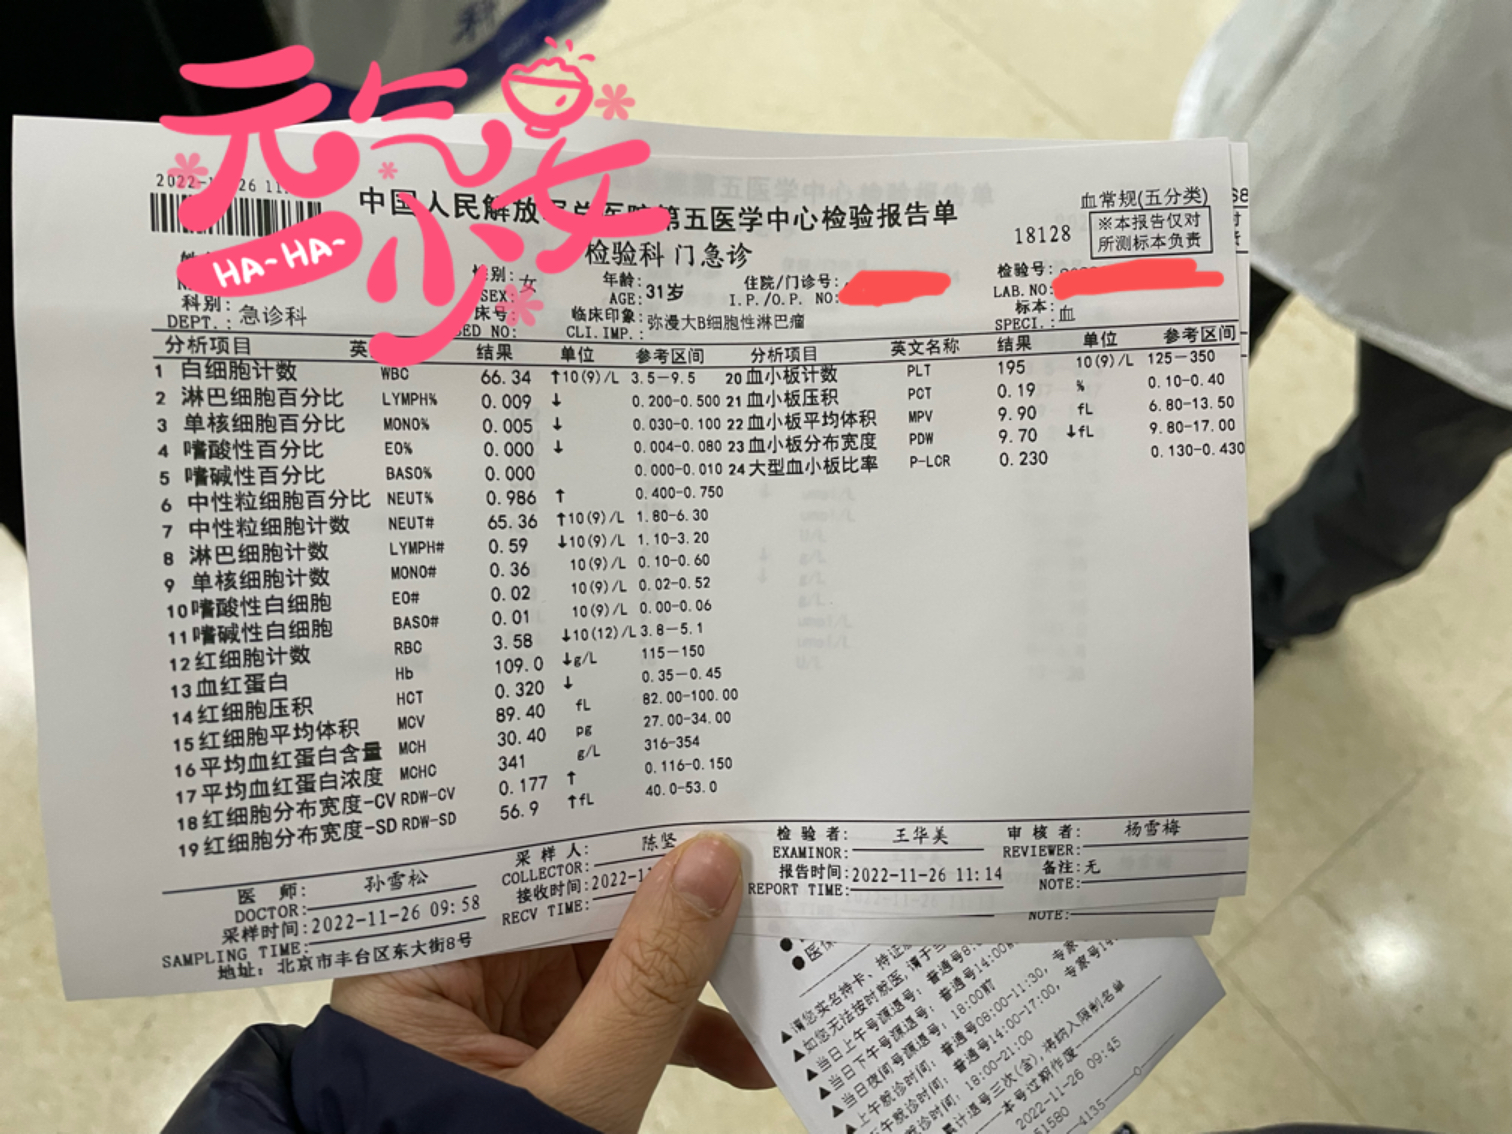 科
元气少女
HA~HA~
中国人民解放军总医院第五医学中心检验报告单
血常规(五分类)
检验科 门急诊
18128
※本报告仅对
所测标本负责
性别: 女
SEX:
年龄: 31岁
AGE:
住院/门诊号:
I.P./O.P. NO:
检验号:
LAB.NO:
科别: 急诊科
DEPT.:
床号:
BED NO:
临床印象: 弥漫大B细胞性淋巴瘤
CLI.IMP.:
标本: 血
SPECI.:
分析项目 英 结果 单位 参考区间 分析项目 英文名称 结果 单位 参考区间
1 白细胞计数 WBC 66.34 ↑10(9)/L 3.5-9.5 20 血小板计数 PLT 195 10(9)/L 125-350
2 淋巴细胞百分比 LYMPH% 0.009 ↓ 0.200-0.500 21 血小板压积 PCT 0.19 % 0.10-0.40
3 单核细胞百分比 MONO% 0.005 ↓ 0.030-0.100 22 血小板平均体积 MPV 9.90 fL 6.80-13.50
4 嗜酸性百分比 EO% 0.000 ↓ 0.004-0.080 23 血小板分布宽度 PDW 9.70 ↓fL 9.80-17.00
5 嗜碱性百分比 BASO% 0.000 0.000-0.010 24 大型血小板比率 P-LCR 0.230 0.130-0.430
6 中性粒细胞百分比 NEUT% 0.986 ↑ 0.400-0.750
7 中性粒细胞计数 NEUT# 65.36 ↑10(9)/L 1.80-6.30
8 淋巴细胞计数 LYMPH# 0.59 ↓10(9)/L 1.10-3.20
9 单核细胞计数 MONO# 0.36 10(9)/L 0.10-0.60
10 嗜酸性白细胞 EO# 0.02 10(9)/L 0.02-0.52
11 嗜碱性白细胞 BASO# 0.01 10(9)/L 0.00-0.06
12 红细胞计数 RBC 3.58 ↓10(12)/L 3.8-5.1
13 血红蛋白 Hb 109.0 ↓g/L 115-150
14 红细胞压积 HCT 0.320 ↓ 0.35-0.45
15 红细胞平均体积 MCV 89.40 fL 82.00-100.00
16 平均血红蛋白含量 MCH 30.40 pg 27.00-34.00
17 平均血红蛋白浓度 MCHC 341 g/L 316-354
18 红细胞分布宽度-CV RDW-CV 0.177 ↑ 0.116-0.150
19 红细胞分布宽度-SD RDW-SD 56.9 ↑fL 40.0-53.0
医 师: 孙雪松
DOCTOR:
采 样 人: 陈坚
COLLECTOR:
检 验 者: 王华美
EXAMINOR:
审 核 者: 杨雪梅
REVIEWER:
采样时间: 2022-11-26 09:58
SAMPLING TIME:
接收时间: 2022-1
RECV TIME:
报告时间: 2022-11-26 11:14
REPORT TIME:
备注: 无
NOTE:
地址: 北京市丰台区东大街8号
NOTE:
2022-11-26 09:45